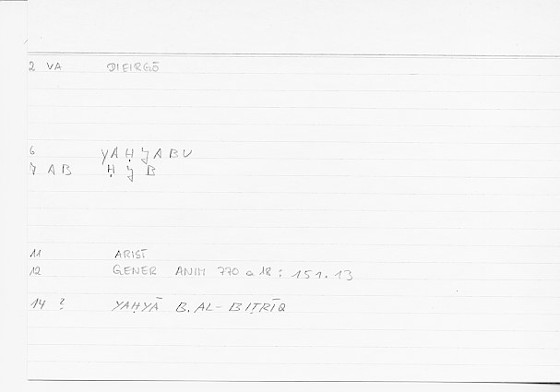 2 VA DIEIRGŌ
6 YAḤJABU
7 AB ḤJB
11 ARIST
12 GENER ANIM 770 a 18 : 151.13
14 ? YAḤYĀ B. AL-BIṬRĪQ